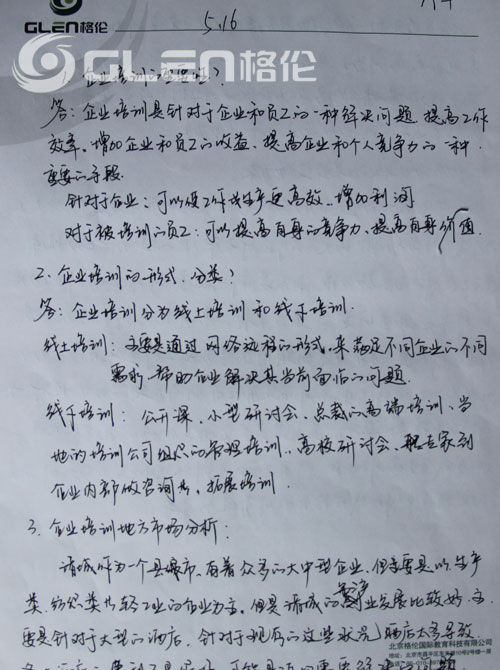 GLEN格伦
5.16
GLEN格伦
企业培训的重要性?
答: 企业培训是针对于企业和员工的一种解决问题 提高工作
效率、增加企业和员工的收益、提高企业和个人竞争力的一种
重要的手段.
针对于企业: 可以使工作或生产更高效、增加利润
对于被培训的员工: 可以提高自身的竞争力、提高自身价值.
2. 企业培训的形式. 分类?
答: 企业培训分为线上培训和线下培训.
线上培训: 主要是通过网络远程的形式, 来满足不同企业的不同
需求, 帮助企业解决其当前面临的问题.
线下培训: 公开课、小型研讨会、总裁的高端培训、当
地的培训公司组织的常规培训、高校研讨会、聘专家到
企业内部做咨询书、拓展培训.
3. 企业培训地方市场分析:
诸城作为一个县城市、有着众多的大中型企业、但主要是以生产
类、纺织类, 轻工业的企业为主. 但是诸城的业发展比较好. 主
要是针对于大型的酒店、针对于现有的这些状况, 酒店太多导致
北京格伦国际教育科技有限公司